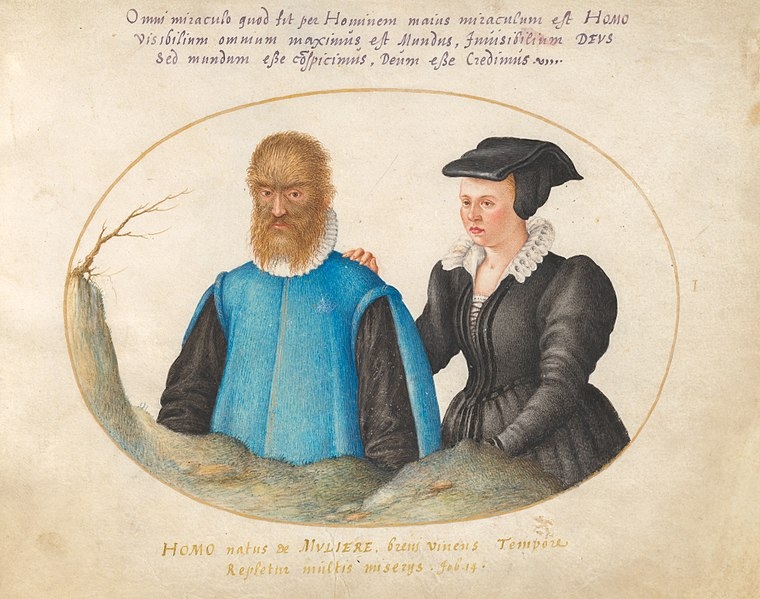 Omni miraculo quod fit per Hominem maius miraculum est HOMO
Visibilium omnium maximus est Mundus, Invisibilium DEVS
Sed mundum esse cõspicimus, Deum esse Credimus
I
HOMO natus de MVLIERE, breui viuens Tempore
Repletur multis miserijs. Job 14.